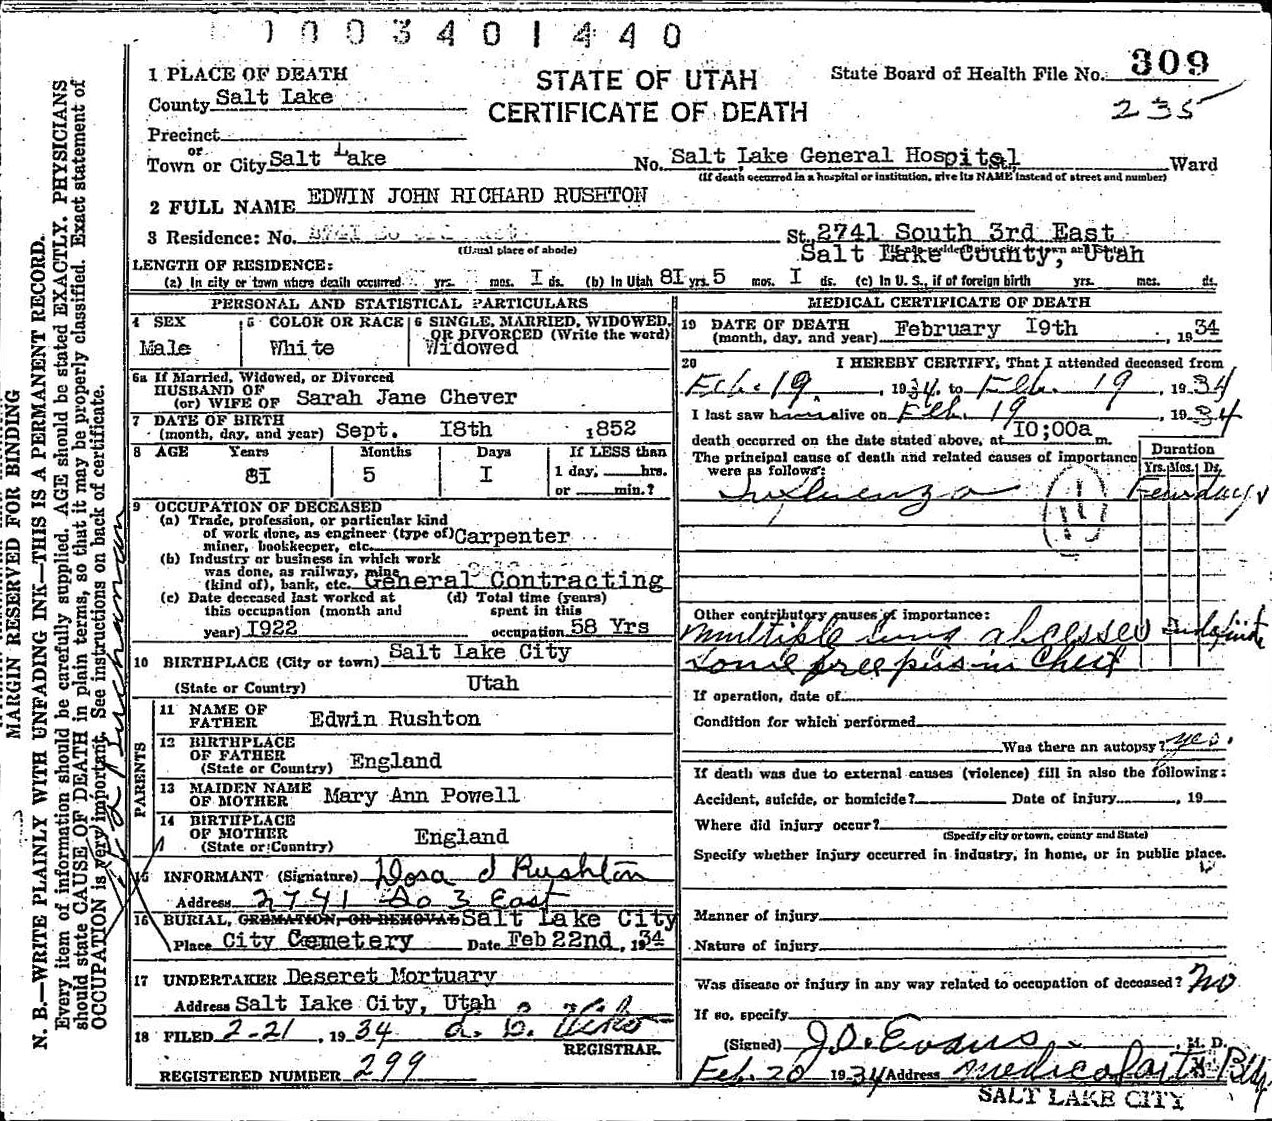 1003401440
309
235
1 PLACE OF DEATH
STATE OF UTAH
State Board of Health File No.
County Salt Lake
CERTIFICATE OF DEATH
Precinct
or
Town or City Salt Lake No. Salt Lake General Hospital Ward
(If death occurred in a hospital or institution, give its NAME instead of street and number)
2 FULL NAME EDWIN JOHN RICHARD RUSHTON
3 Residence: No. St. 2741 South 3rd East
(Usual place of abode)
Salt Lake County, Utah
LENGTH OF RESIDENCE:
(a) In city or town where death occurred yrs. mos. I ds. (b) In Utah 8I yrs. 5 mos. I ds. (c) In U. S., if of foreign birth yrs. mos. ds.
PERSONAL AND STATISTICAL PARTICULARS
4 SEX
Male
5 COLOR OR RACE
White
6 SINGLE, MARRIED, WIDOWED, OR DIVORCED (Write the word)
Widowed
6a If Married, Widowed, or Divorced
HUSBAND OF
(or) WIFE OF Sarah Jane Chever
7 DATE OF BIRTH
(month, day, and year) Sept. I8th , 1852
8 AGE Years Months Days If LESS than
8I 5 I 1 day, hrs.
or min.?
9 OCCUPATION OF DECEASED
(a) Trade, profession, or particular kind
of work done, as engineer (type of) Carpenter
miner, bookkeeper, etc.
(b) Industry or business in which work
was done, as railway, mine
(kind of), bank, etc. General Contracting
(c) Date deceased last worked at (d) Total time (years)
this occupation (month and spent in this
year) I922 occupation 58 Yrs
10 BIRTHPLACE (City or town) Salt Lake City
(State or Country) Utah
PARENTS
11 NAME OF
FATHER Edwin Rushton
12 BIRTHPLACE
OF FATHER
(State or Country) England
13 MAIDEN NAME
OF MOTHER Mary Ann Powell
14 BIRTHPLACE
OF MOTHER
(State or Country) England
15 INFORMANT (Signature) Dosa J Rushton
Address 2741 So 3 East
16 BURIAL, CREMATION, OR REMOVAL Salt Lake City
Place City Cemetery Date Feb 22nd , 1934
17 UNDERTAKER Deseret Mortuary
Address Salt Lake City, Utah
18 FILED 2-21 , 1934
REGISTRAR.
REGISTERED NUMBER 299
MEDICAL CERTIFICATE OF DEATH
19 DATE OF DEATH
(month, day, and year) February I9th , 1934
20 I HEREBY CERTIFY, That I attended deceased from
Feb. 19 , 1934, to Feb. 19 , 1934
I last saw him alive on Feb. 19 , 1934
death occurred on the date stated above, at I0;00a m.
The principal cause of death and related causes of importance
were as follows:
Duration
Yrs. Mos. Ds.
Influenza Few days
11
Other contributory causes of importance:
multiple lung abscesses Indefinite
some free pus in chest
If operation, date of
Condition for which performed
Was there an autopsy? yes.
If death was due to external causes (violence) fill in also the following:
Accident, suicide, or homicide? Date of injury , 19
Where did injury occur?
(Specify city or town, county and State)
Specify whether injury occurred in industry, in home, or in public place.
Manner of injury
Nature of injury
Was disease or injury in any way related to occupation of deceased? No
If so, specify
(Signed) J.D. Evans , M. D.
Feb. 20 1934 Address Medical Arts Bldg
SALT LAKE CITY
MARGIN RESERVED FOR BINDING
N. B.—WRITE PLAINLY WITH UNFADING INK—THIS IS A PERMANENT RECORD.
Every item of information should be carefully supplied. AGE should be stated EXACTLY. PHYSICIANS
should state CAUSE OF DEATH in plain terms, so that it may be properly classified. Exact statement of
OCCUPATION is very important. See instructions on back of certificate.